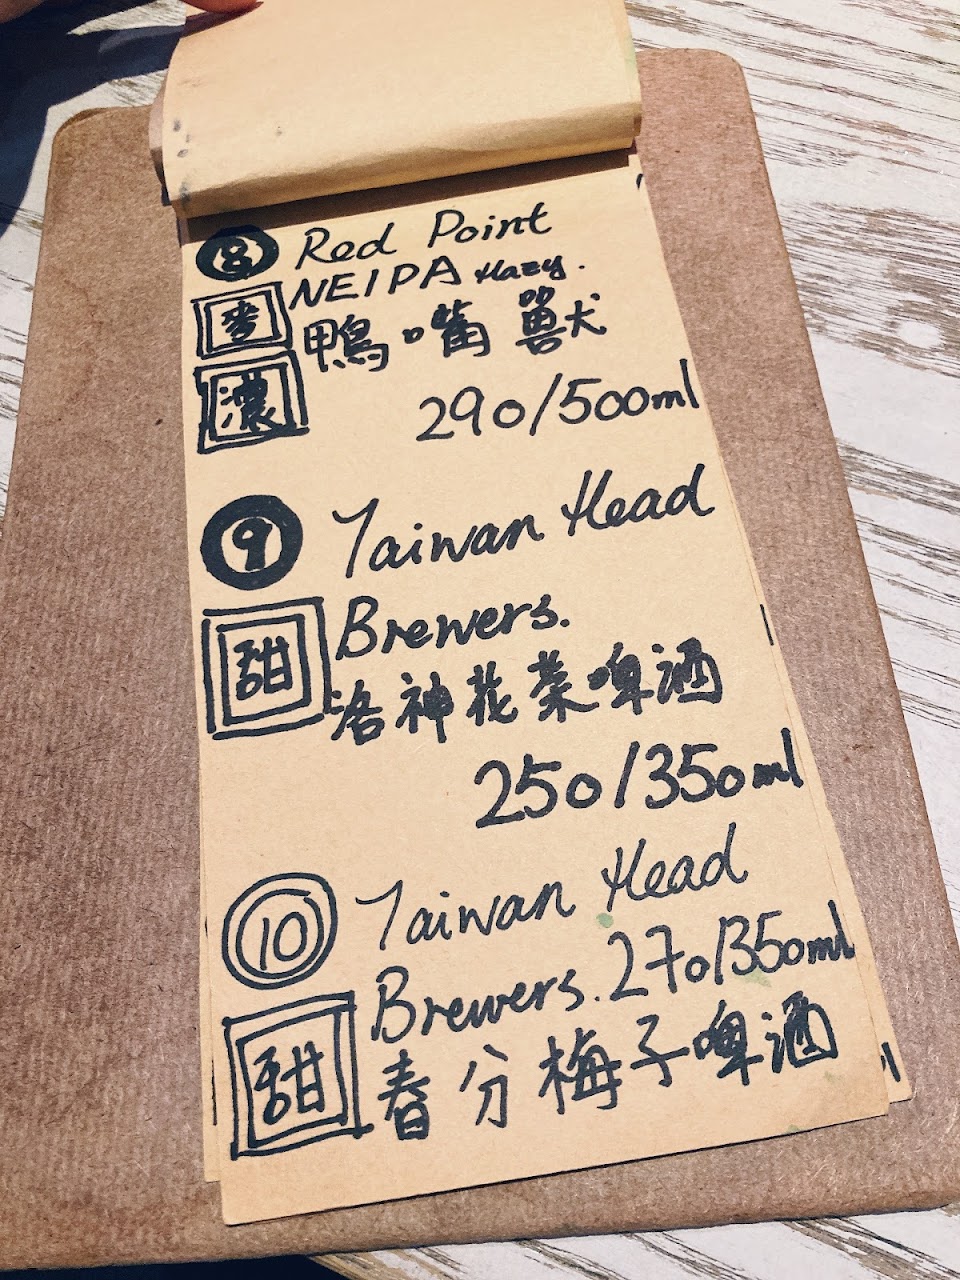 8 Red Point
NEIPA Hazy.
麥
鴨嘴獸
濃
290/500ml
9 Taiwan Head
甜 Brewers.
洛神花菜啤酒
250/350ml
10 Taiwan Head
Brewers. 270/350ml
甜
春分梅子啤酒